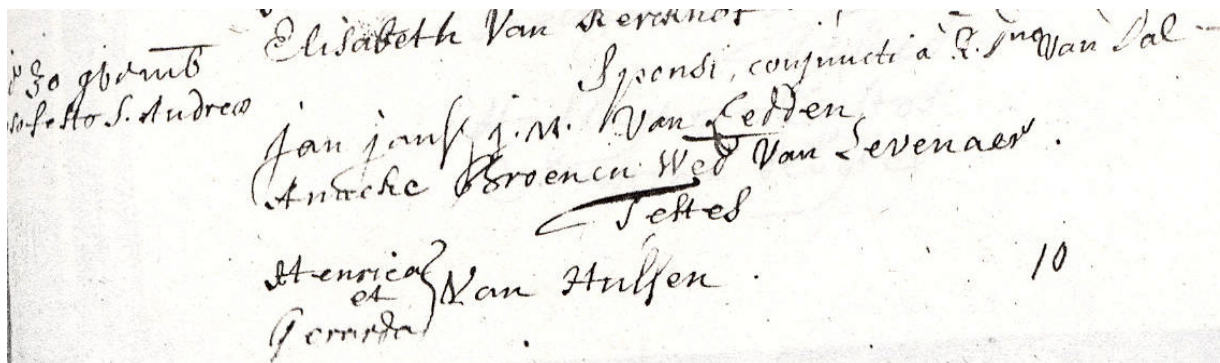 Elisabeth Van Kerckhof
30 9bemb
festo S. Andreæ
Sponsi, conjuncti à R. Dno Van Dal-
Jan jansz j. M. Van Ledden
Anneke Broenen Wed Van Sevenaer.
Testes
Henrica
et
Gerarda
Van Hulsen.
10